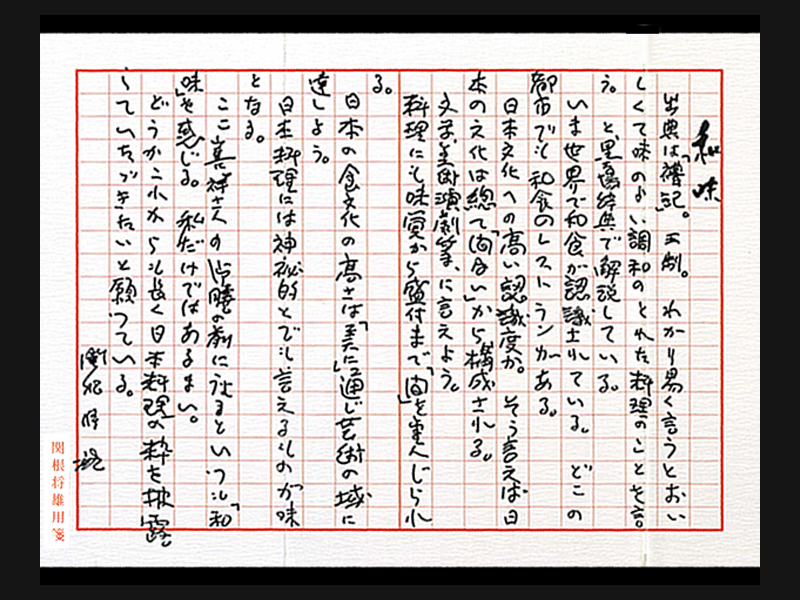 和味
出典は「禮記」。王制。 わかり易く言うとおい
しくて味のよい調和のとれた料理のことを言
う。と、辞典で解説している。
いま世界で和食が認識されている。 どこの
都市でも和食のレストランがある。
日本文化への高い認識度か。 そう言えば日
本の文化は総て「間合い」から構成される。
文学美術演劇等、に言えよう。
料理にも味覚から盛付まで「間」を重んじられ
る。
日本の食文化の高さは「美に」通じ芸術の域に
達しよう。
日本料理には神秘的とでも言えるものが味
となる。
ここ さんの 膳の前に といつも「和
味」を感じる。 私だけではあるまい。
どうかこれからも長く日本料理の粋を披露
していただきたいと願っている。
関根将雄用箋